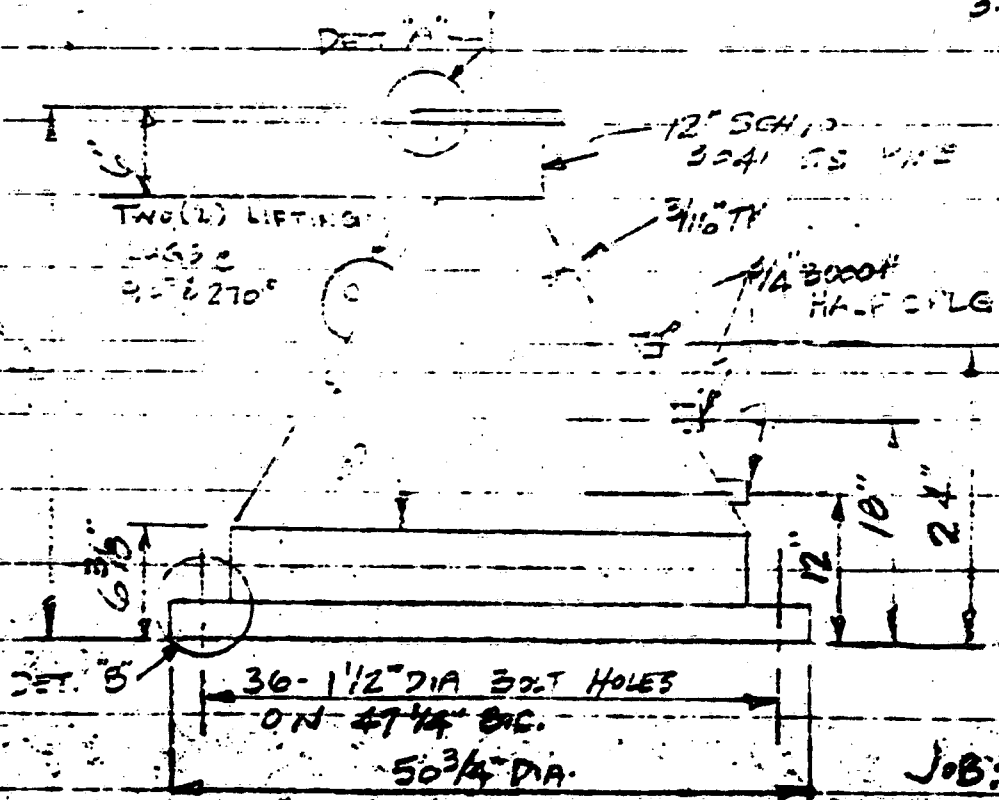 DET. "A"
12" SCH 10
304L SS PIPE
6"
TWO (2) LIFTING
LUGS @
90° & 270°
3/16" TY
3/4" 3000#
HALF CPLG
6 3/8"
12"
18"
24"
DET. "B"
36- 1 1/2" DIA BOLT HOLES
ON 47 1/4" B.C.
50 3/4" DIA.
JOB: